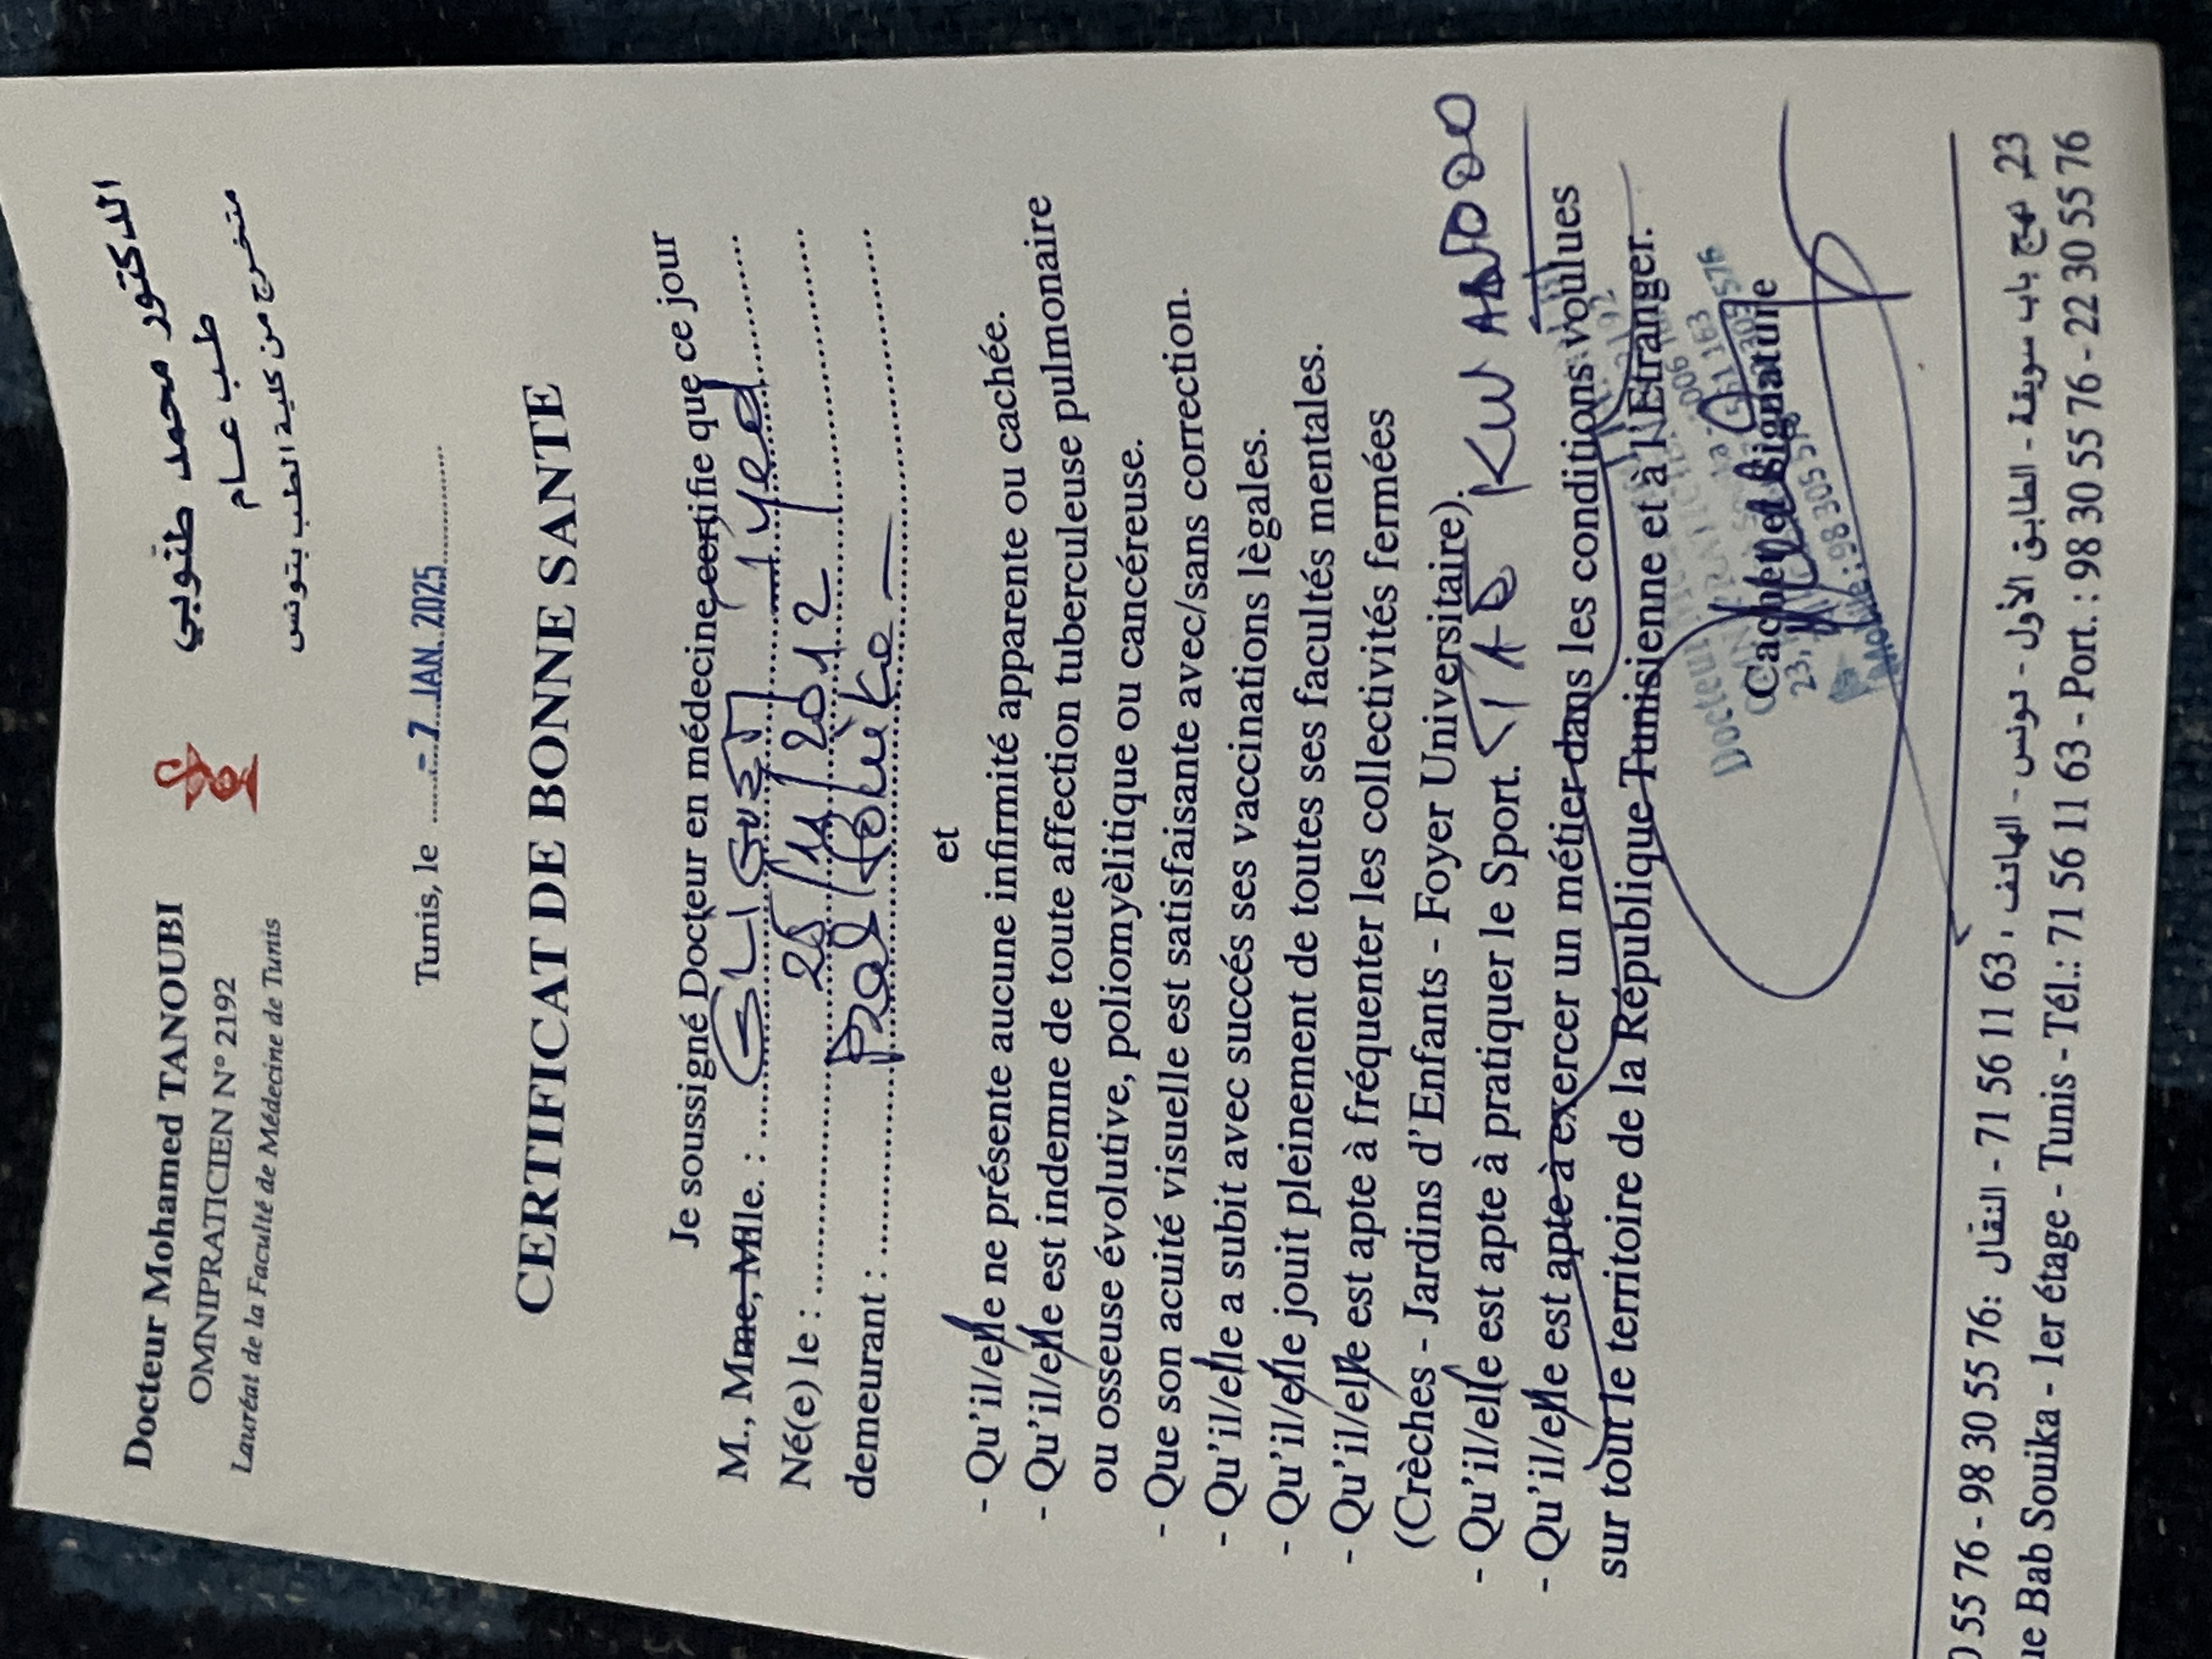 Docteur Mohamed TANOUBI
OMNIPRATICIEN N° 2192
Lauréat de la Faculté de Médecine de Tunis
الدكتور محمد طنوبي
طب عام
متخرج من كلية الطب بتونس
Tunis, le - 7 JAN. 2025
CERTIFICAT DE BONNE SANTE
Je soussigné Docteur en médecine certifie que ce jour
M., Mme, Mlle. : Iyed
Né(e) le : 25/11/2012
demeurant :
et
- Qu'il/elle ne présente aucune infirmité apparente ou cachée.
- Qu'il/elle est indemne de toute affection tuberculeuse pulmonaire
ou osseuse évolutive, poliomyèlitique ou cancéreuse.
- Que son acuité visuelle est satisfaisante avec/sans correction.
- Qu'il/elle a subit avec succés ses vaccinations lègales.
- Qu'il/elle jouit pleinement de toutes ses facultés mentales.
- Qu'il/elle est apte à fréquenter les collectivités fermées
(Crèches - Jardins d'Enfants - Foyer Universitaire).
- Qu'il/elle est apte à pratiquer le Sport.
- Qu'il/elle est apte à exercer un métier dans les conditions voulues
sur tout le territoire de la République Tunisienne et à l'Etranger.
Cachet et Signature
23 نهج باب سويقة - الطابق الأول - تونس - الهاتف : 71 56 11 63 - النقال : 98 30 55 76 - 55 76
ue Bab Souika - 1er étage - Tunis - Tél.: 71 56 11 63 - Port. : 98 30 55 76 - 22 30 55 76